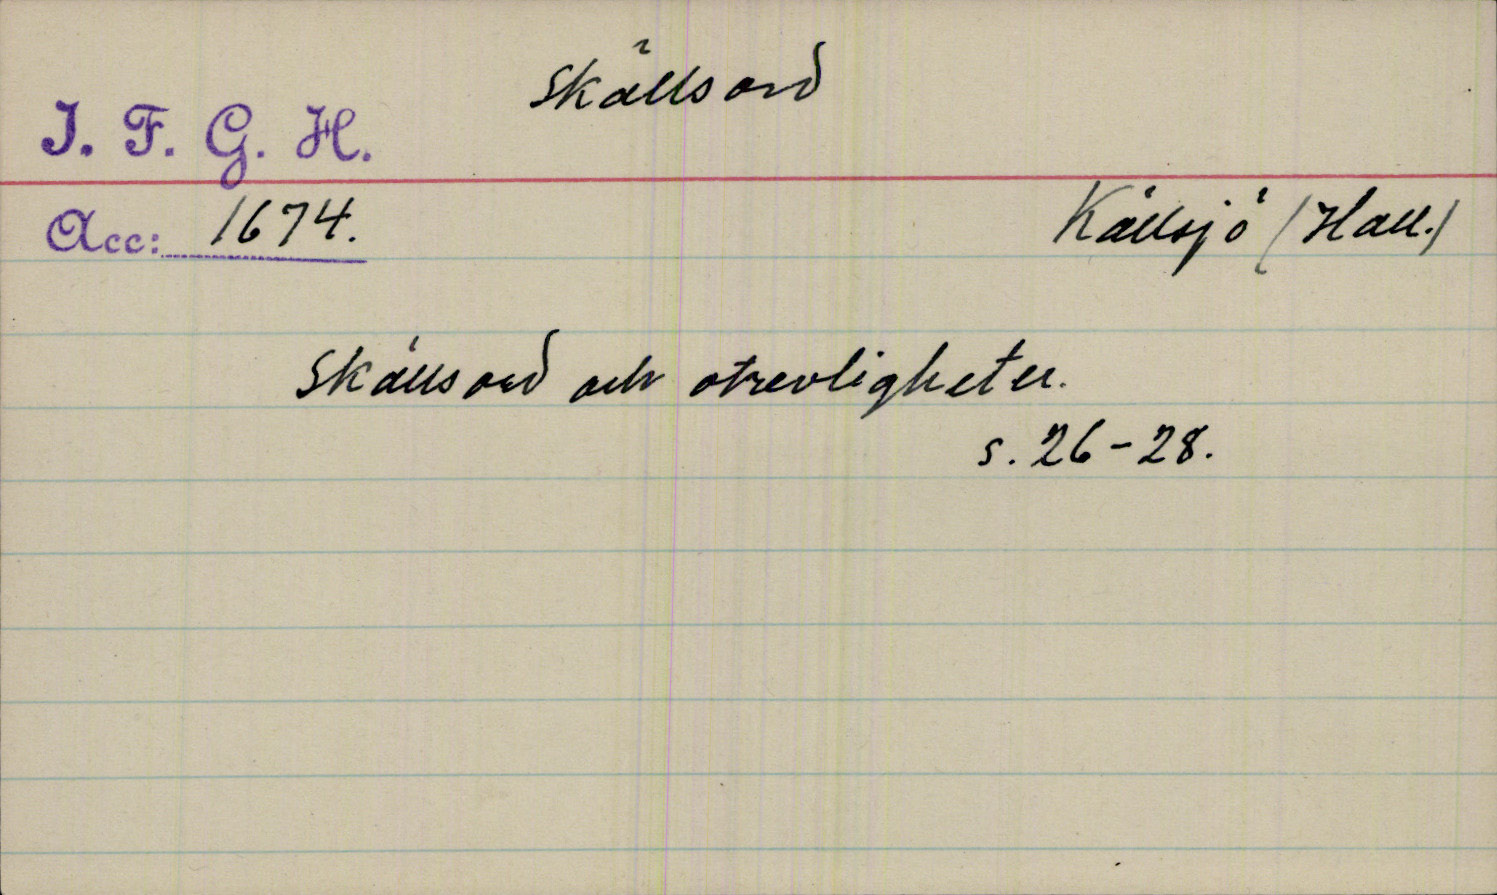 Skällsord
I. F. G. H.
Acc: 1674.
Källsjö (Hall.)
Skällsord och otrevligheter.
s. 26-28.